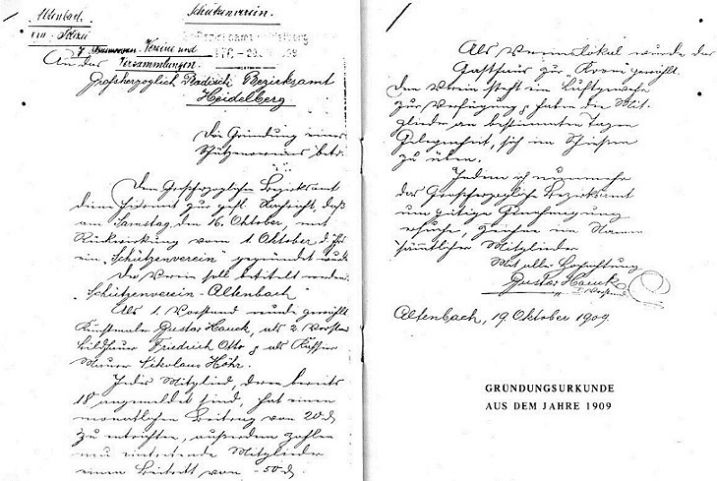 Altenbach.
Schützenverein.
Polizei
Vereine und
An das Versammlungen.
Großherzoglich Badisch Bezirksamt
Heidelberg
Die Gründung eines
Schützenvereins betr.
Dem Großherzoglichen Bezirksamt
diene hiermit zur gefl. Nachricht, daß
am Samstag den 16. Oktober, mit
Rückwirkung vom 1 Oktober d. Js.
ein „Schützenverein" gegründet wurde
Der Verein soll betitelt werden
„Schützenverein-Altenbach
Als 1 Vorstand wurde gewählt
Kunstmaler Gustav Hauck, als 2 Vorstand
Bildhauer Friedrich Otto, als Kassier
Maurer Nikolaus Höhr.
Jedes Mitglied, deren bereits
18 angemeldet sind, hat einen
monatlichen Beitrag von 20 d
zu entrichten, außerdem zahlen
neu eintretende Mitglieder
einen Beitritt von -50 d.
Als Vereinslokal wurde das
Gasthaus zur „Krone" gewählt.
Dem Verein steht ein Luftgewehr
zur Verfügung, haben die Mit-
glieder an bestimmten Tagen
Gelegenheit, sich im Schießen
zu üben.
Indem ich nunmehr
das Großherzogliche Bezirksamt
um gütige Genehmigung
ersuche, zeichne im Namen
sämtlicher Mitglieder
Mit aller Hochachtung
Gustav Hauck
1. Vorstand
Altenbach, 19 Oktober 1909.
GRÜNDUNGSURKUNDE
AUS DEM JAHRE 1909